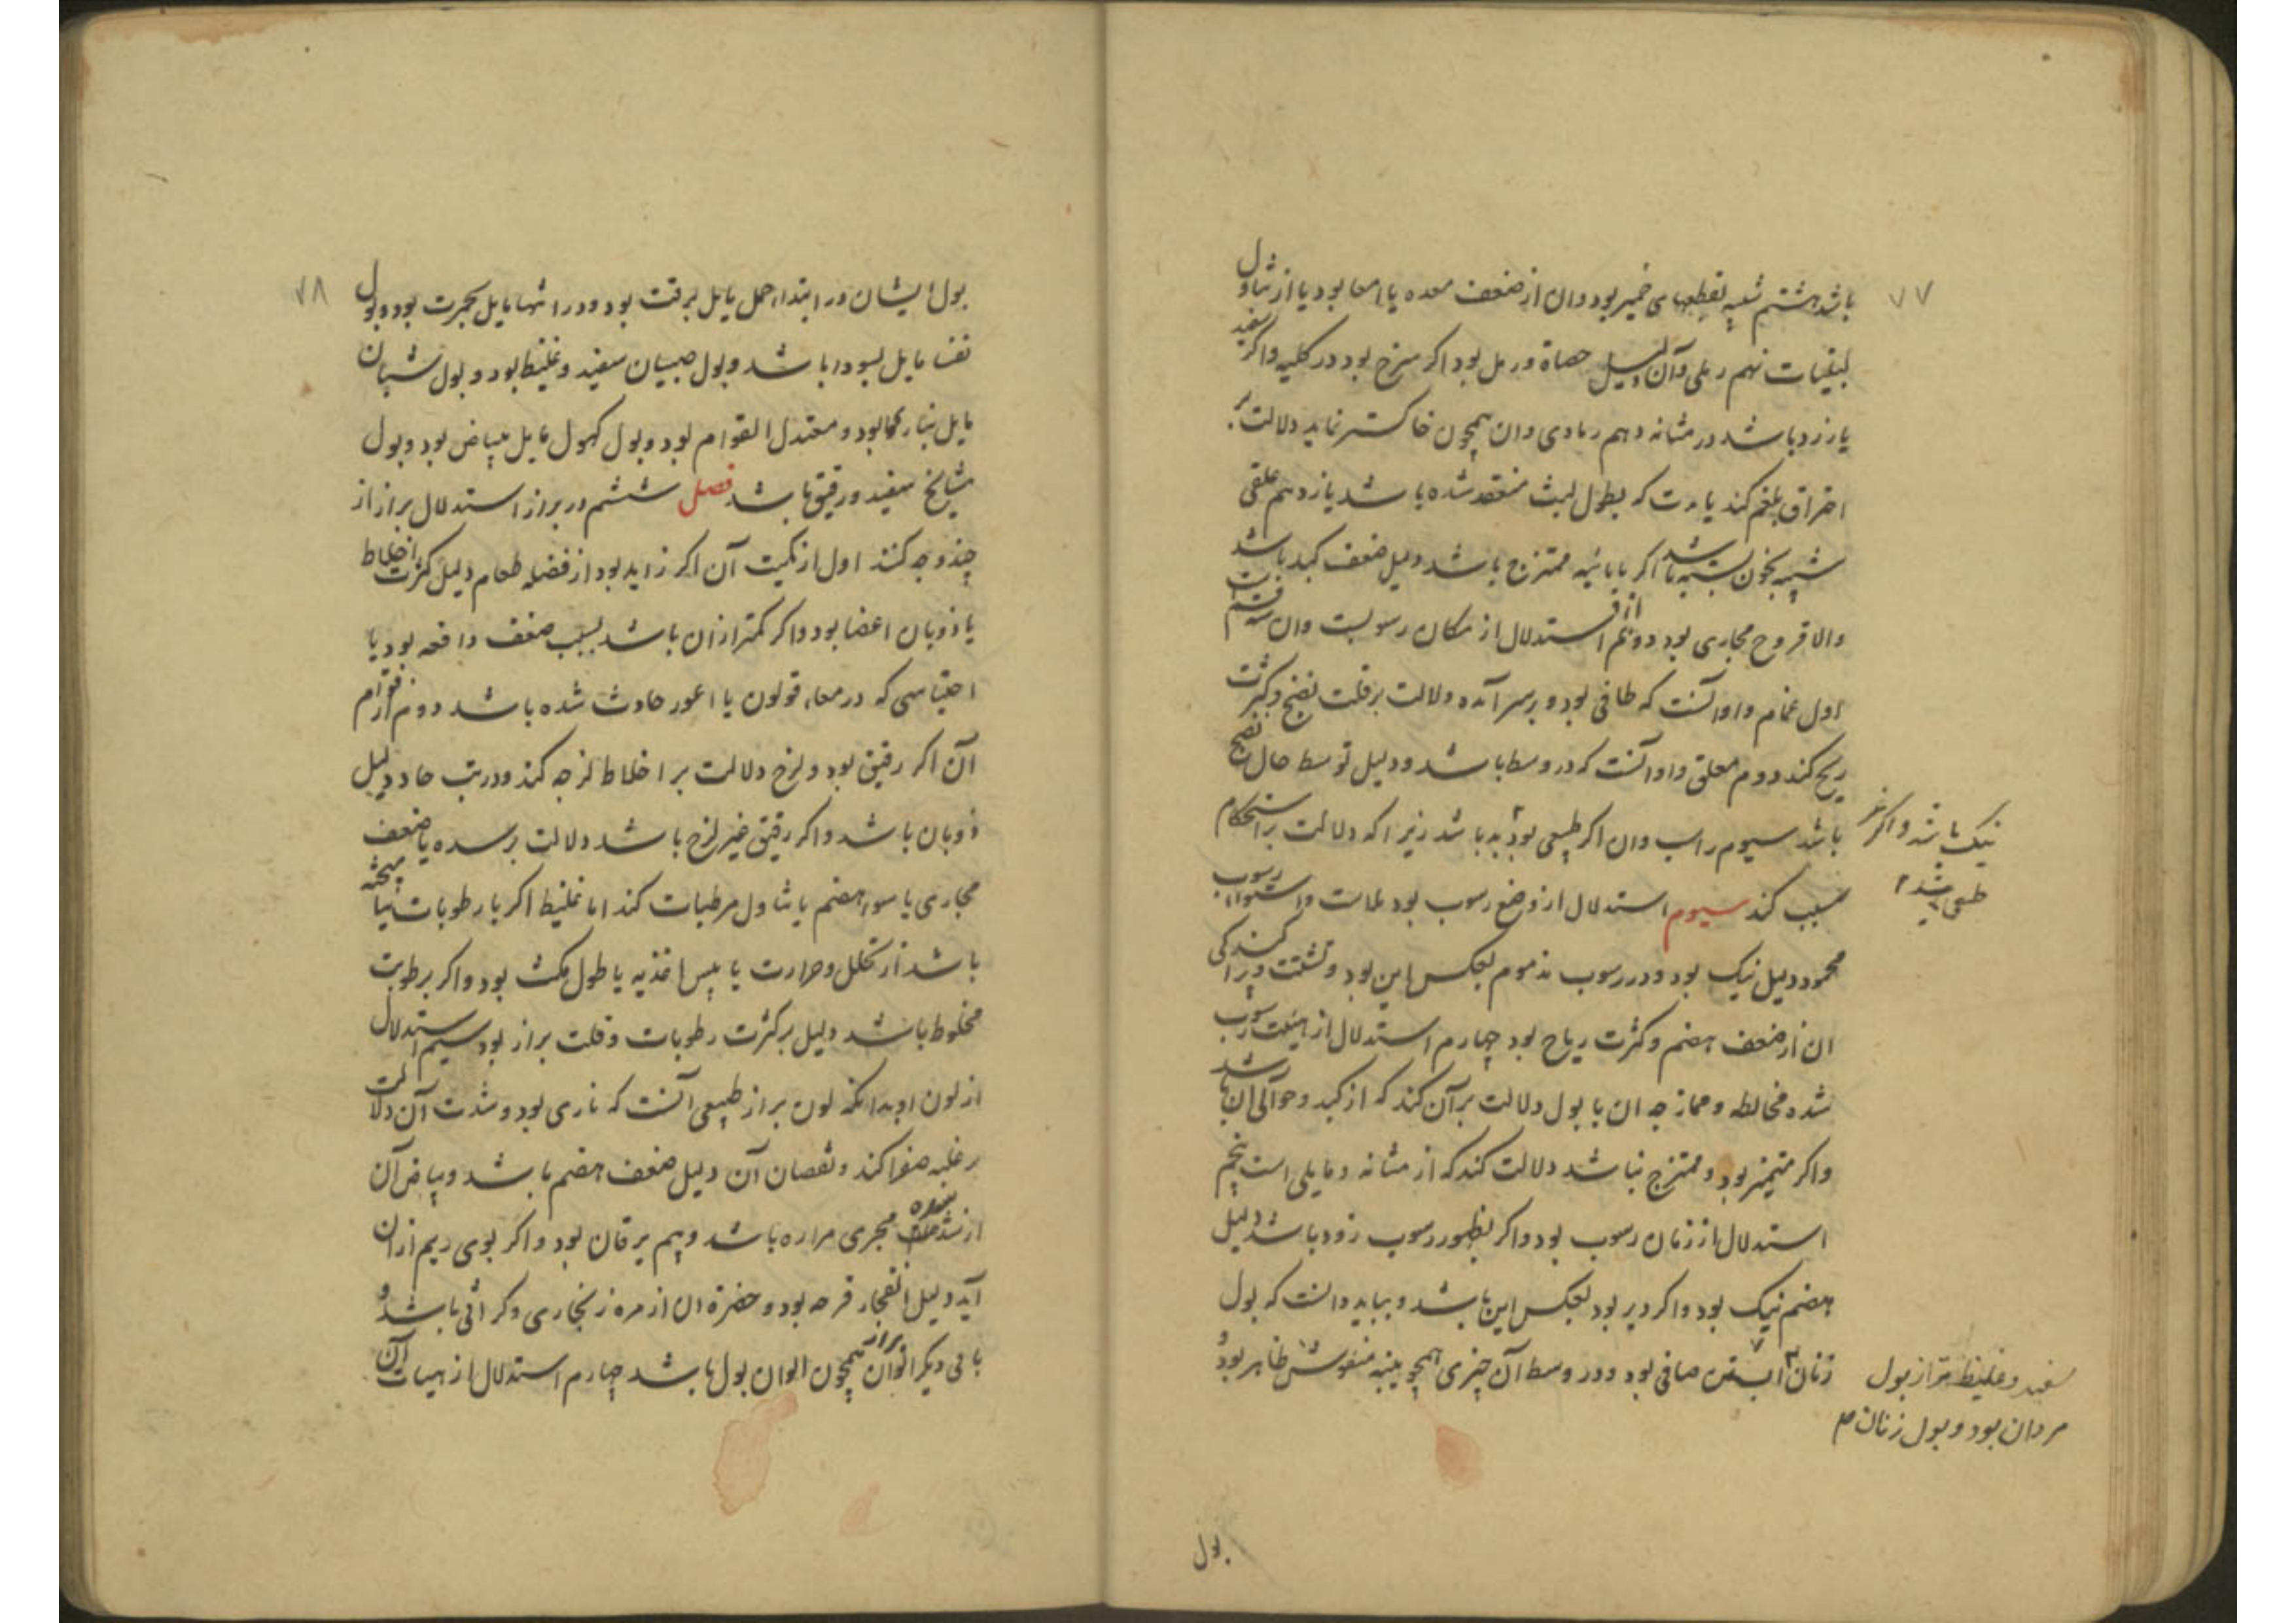 ۷۷
باشد هشتم شبیه بقطعهای خمیر بود و ان از ضعف معده یا امعا بود یا از تناول
لبنیات نهم رملی و آن دلیل حصاة و رمل بود اکر سرخ بود در کلیه و اکر سفید
یا زرد باشد در مثانه دهم رمادی و ان همچون خاکستر نماید دلالت بر
احتراق بلغم کند یا مدت که بطول لبث منعقد شده باشد یازدهم علقی
شبیه بخون بسته باشد اکر با مائیه ممتزج باشد دلیل ضعف کبد باشد
والا قروح مجاری بود دویم از استدلال از مکان رسوبست وان سه قسمست
اول غمام و او آنست که طافی بود و بر سر آمده دلالت بر قلت نضج و کثرت
ریح کند دوم معلق و او آنست که در وسط باشد و دلیل توسط حال نضج
باشد سیوم راسب وان اکر طبیعی بود به باشد زیرا که دلالت بر استحکام
نیک باشد و اکر غیر
طبیعی باشد
سبب کند سیوم استدلال از وضع رسوب بود ملاست و استواء رسوب
محمود دلیل نیک بود و در رسوب مذموم بعکس این بود و تشتت و پراکندکی
ان از ضعف هضم و کثرت ریاح بود چهارم استدلال از هیئت رسوب
شده مخالطه و ممازجه ان با بول دلالت بر آن کند که از کبد و حوالی ان باشد
و اکر متمیز بود و ممتزج نباشد دلالت کند که از مثانه و مایلی است پنجم
استدلال از زمان رسوب بود و اکر ظهور رسوب زود باشد دلیل
هضم نیک بود و اکر دیر بود بعکس این باشد و بباید دانست که بول
زنان آبستن صافی بود و در وسط آن چیزی همچو پنبه منفوش ظاهر بود و
سفید و غلیظ تر از بول
مردان بود و بول زنان
بول
۷۸
بول ایشان در ابتداء حمل مایل برقت بود و در انتها مایل بحمرت بود و بول
نفسا مایل بسودا باشد و بول صبیان سفید و غلیظ بود و بول شبان
مایل بناریکا بود و معتدل القوام بود و بول کهول مایل ببیاض بود و بول
مشایخ سفید و رقیق باشد فصل ششم در براز استدلال براز از
چند وجه کنند اول از کمیت آن اکر زاید بود از فضله طعام دلیل کثرت اخلاط
یا ذوبان اعضا بود و اکر کمتر از ان باشد بسبب ضعف دافعه بود یا
احتباسی که در معاء قولون یا اعور حادث شده باشد دوم از قوام
آن اکر رقیق بود و لزج دلالت بر اخلاط لزجه کند و در تب حاد دلیل
ذوبان باشد و اکر رقیق غیر لزج باشد دلالت بر سده یا ضعف
مجاری یا سوء هضم یا تناول مرطبات کند اما غلیظ اکر با رطوبات
باشد از تحلل و حرارت یا یبس اغذیه یا طول مکث بود و اکر برطوبت
مخلوط باشد دلیل بر کثرت رطوبات و قلت براز بود سیم استدلال
از لون او بدانکه لون براز طبیعی آنست که ناری بود و شدت آن دلالت
بر غلبه صفرا کند و نقصان آن دلیل ضعف هضم باشد و بیاض آن
از سده مجری مراره باشد و بیم یرقان بود و اکر بوی ریم از ان
آید دلیل انفجار قرحه بود و خضرة ان از مره زنجاری و کراثی باشد و
باقی دیکر الوان براز همچون الوان بول باشد چهارم استدلال از هیات آن